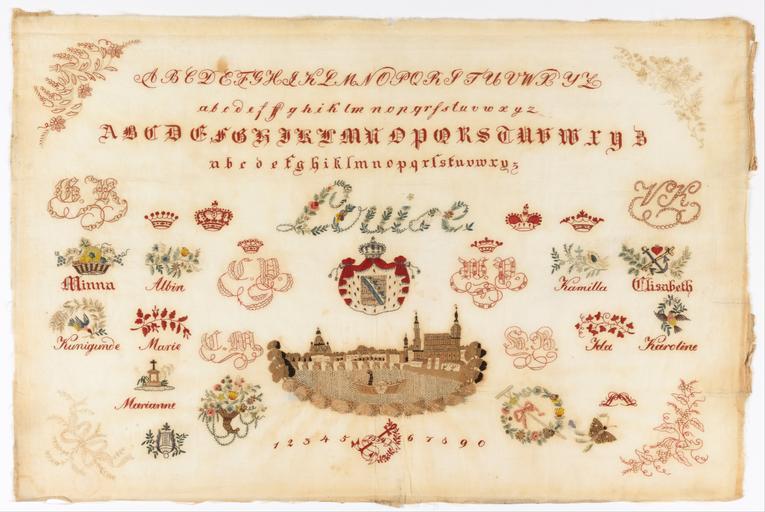 A B C D E F G H I K L M N O P Q R S T U V W X Y Z
a b c d e f ff g h i k l m n o p q r ſ s t u v w x y z
A B C D E F G H I K L M N O P Q R S T U V W X Y Z
a b c d e f g h i k l m n o p q r ſ s t u v w x y z
Louise
Minna Albin Kamilla Elisabeth
Kunigunde Marie Ida Karoline
Marianne
1 2 3 4 5 6 7 8 9 0